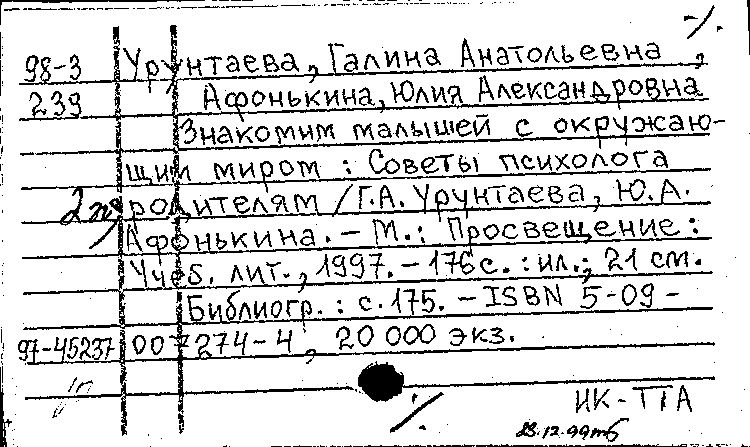 98-3 Урунтаева, Галина Анатольевна,
239 Афонькина, Юлия Александровна
Знакомим малышей с окружаю-
щим миром : Советы психолога
родителям / Г.А. Урунтаева, Ю.А.
Афонькина. – М.: Просвещение :
Учеб. лит., 1997. – 176 с. : ил.; 21 см.
Библиогр. : с. 175. – ISBN 5-09-
97-45237 007274-4, 20 000 экз.
ИК-ТТА